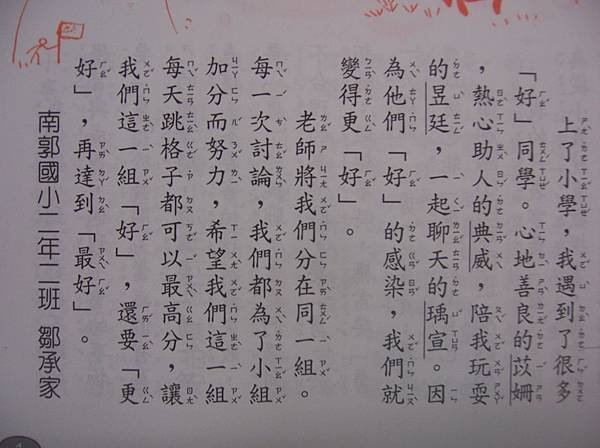 上了小學，我遇到了很多
「好」同學。心地善良的苡姍
，熱心助人的典威，陪我玩耍
的昱廷，一起聊天的瑀宣。因
為他們「好」的感染，我們就
變得更「好」。
老師將我們分在同一組。
每一次討論，我們都為了小組
加分而努力，希望我們這一組
每天跳格子都可以最高分，讓
我們這一組「好」，還要「更
好」，再達到「最好」。
南郭國小二年二班 鄒承家